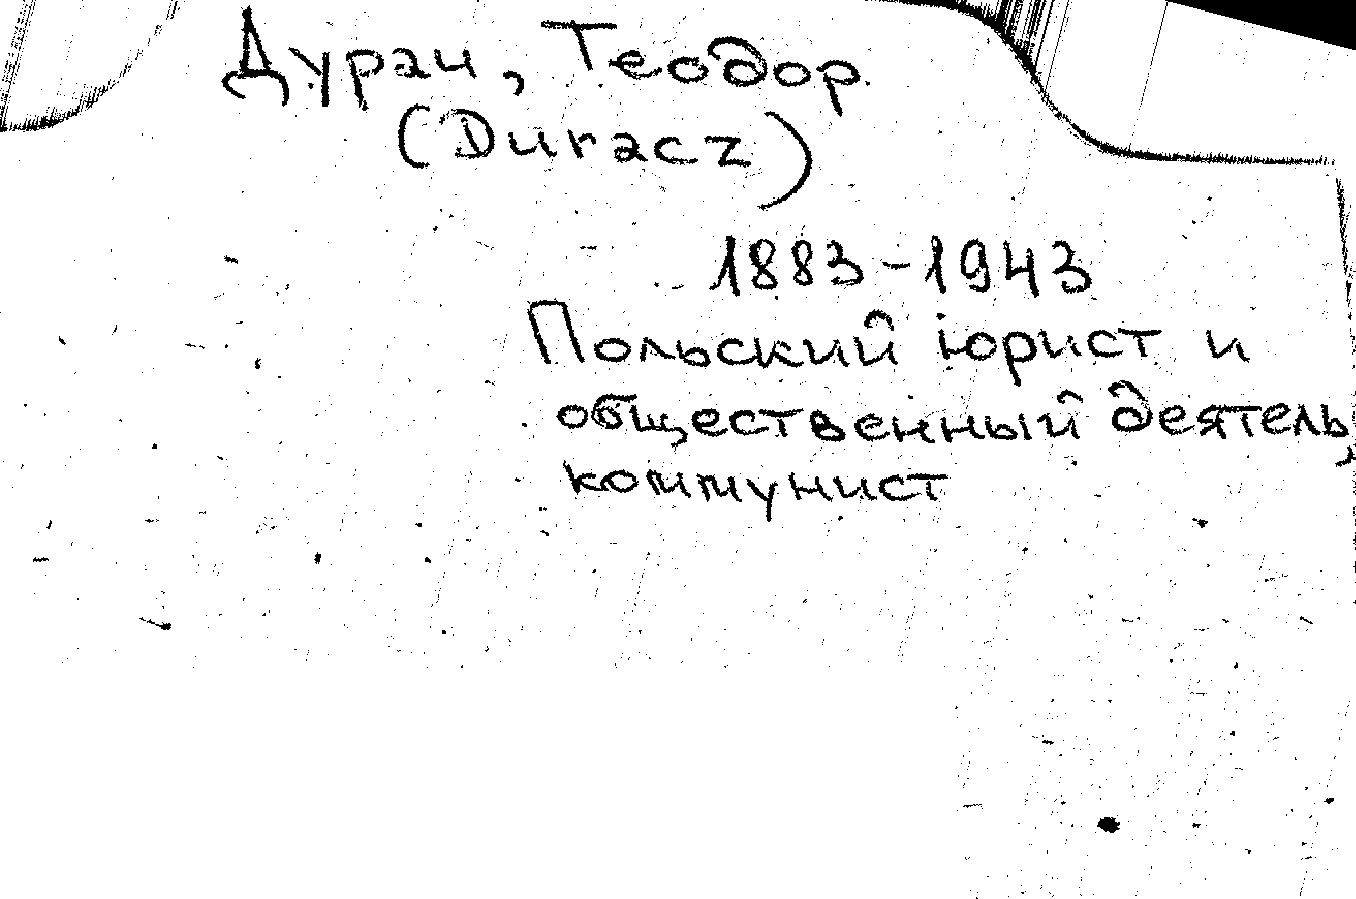 Дурач, Теодор
(Duracz)
1883-1943
Польский юрист и
общественный деятель,
коммунист